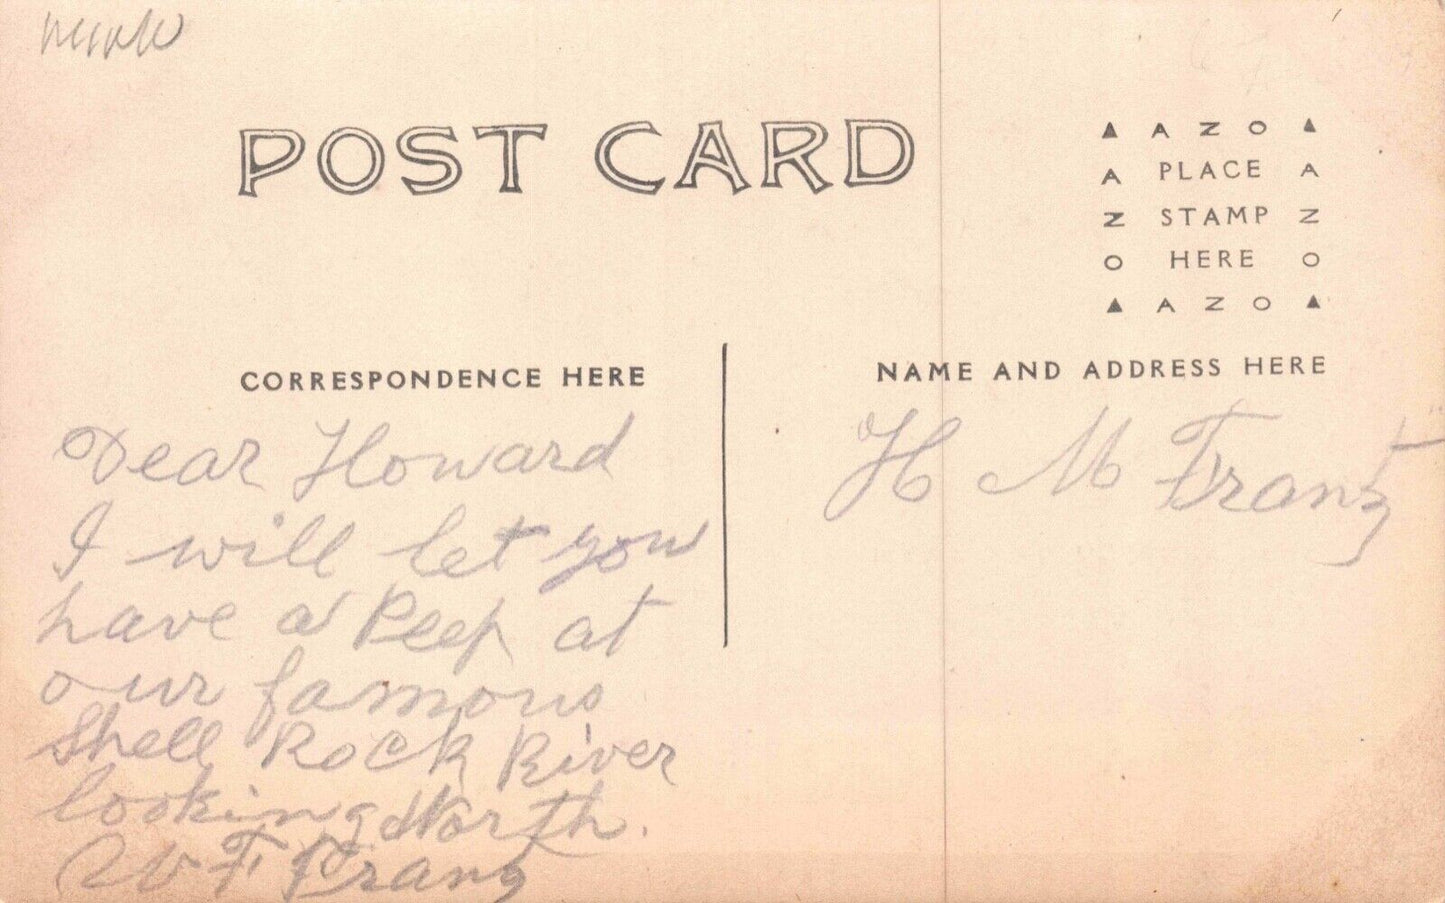 POST CARD
▲ A Z O ▲
A PLACE A
Z STAMP Z
O HERE O
▲ A Z O ▲
CORRESPONDENCE HERE
NAME AND ADDRESS HERE
Dear Howard
I will let you
have a Peep at
our famous
Shell Rock River
looking North.
W F Franz
H M Frantz